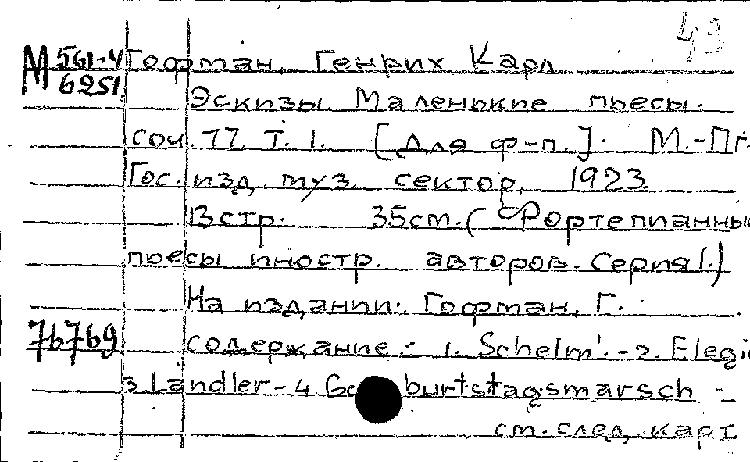 43
М 561-4 Гофман, Генрих Карл
6251
Эскизы. Маленькие пьесы.
соч. 77. Т. 1. [Для ф-п.]. М.-Пг.
Гос. изд. муз. сектор, 1923
13 стр. 35 см. (Фортепианны
пьесы иностр. авторов. Серия 1.)
На издании: Гофман, Г.
76769 содержание: 1. Schelm. - 2. Elegi
3. Ländler - 4 Geburtstagsmarsch -
см. след. карт